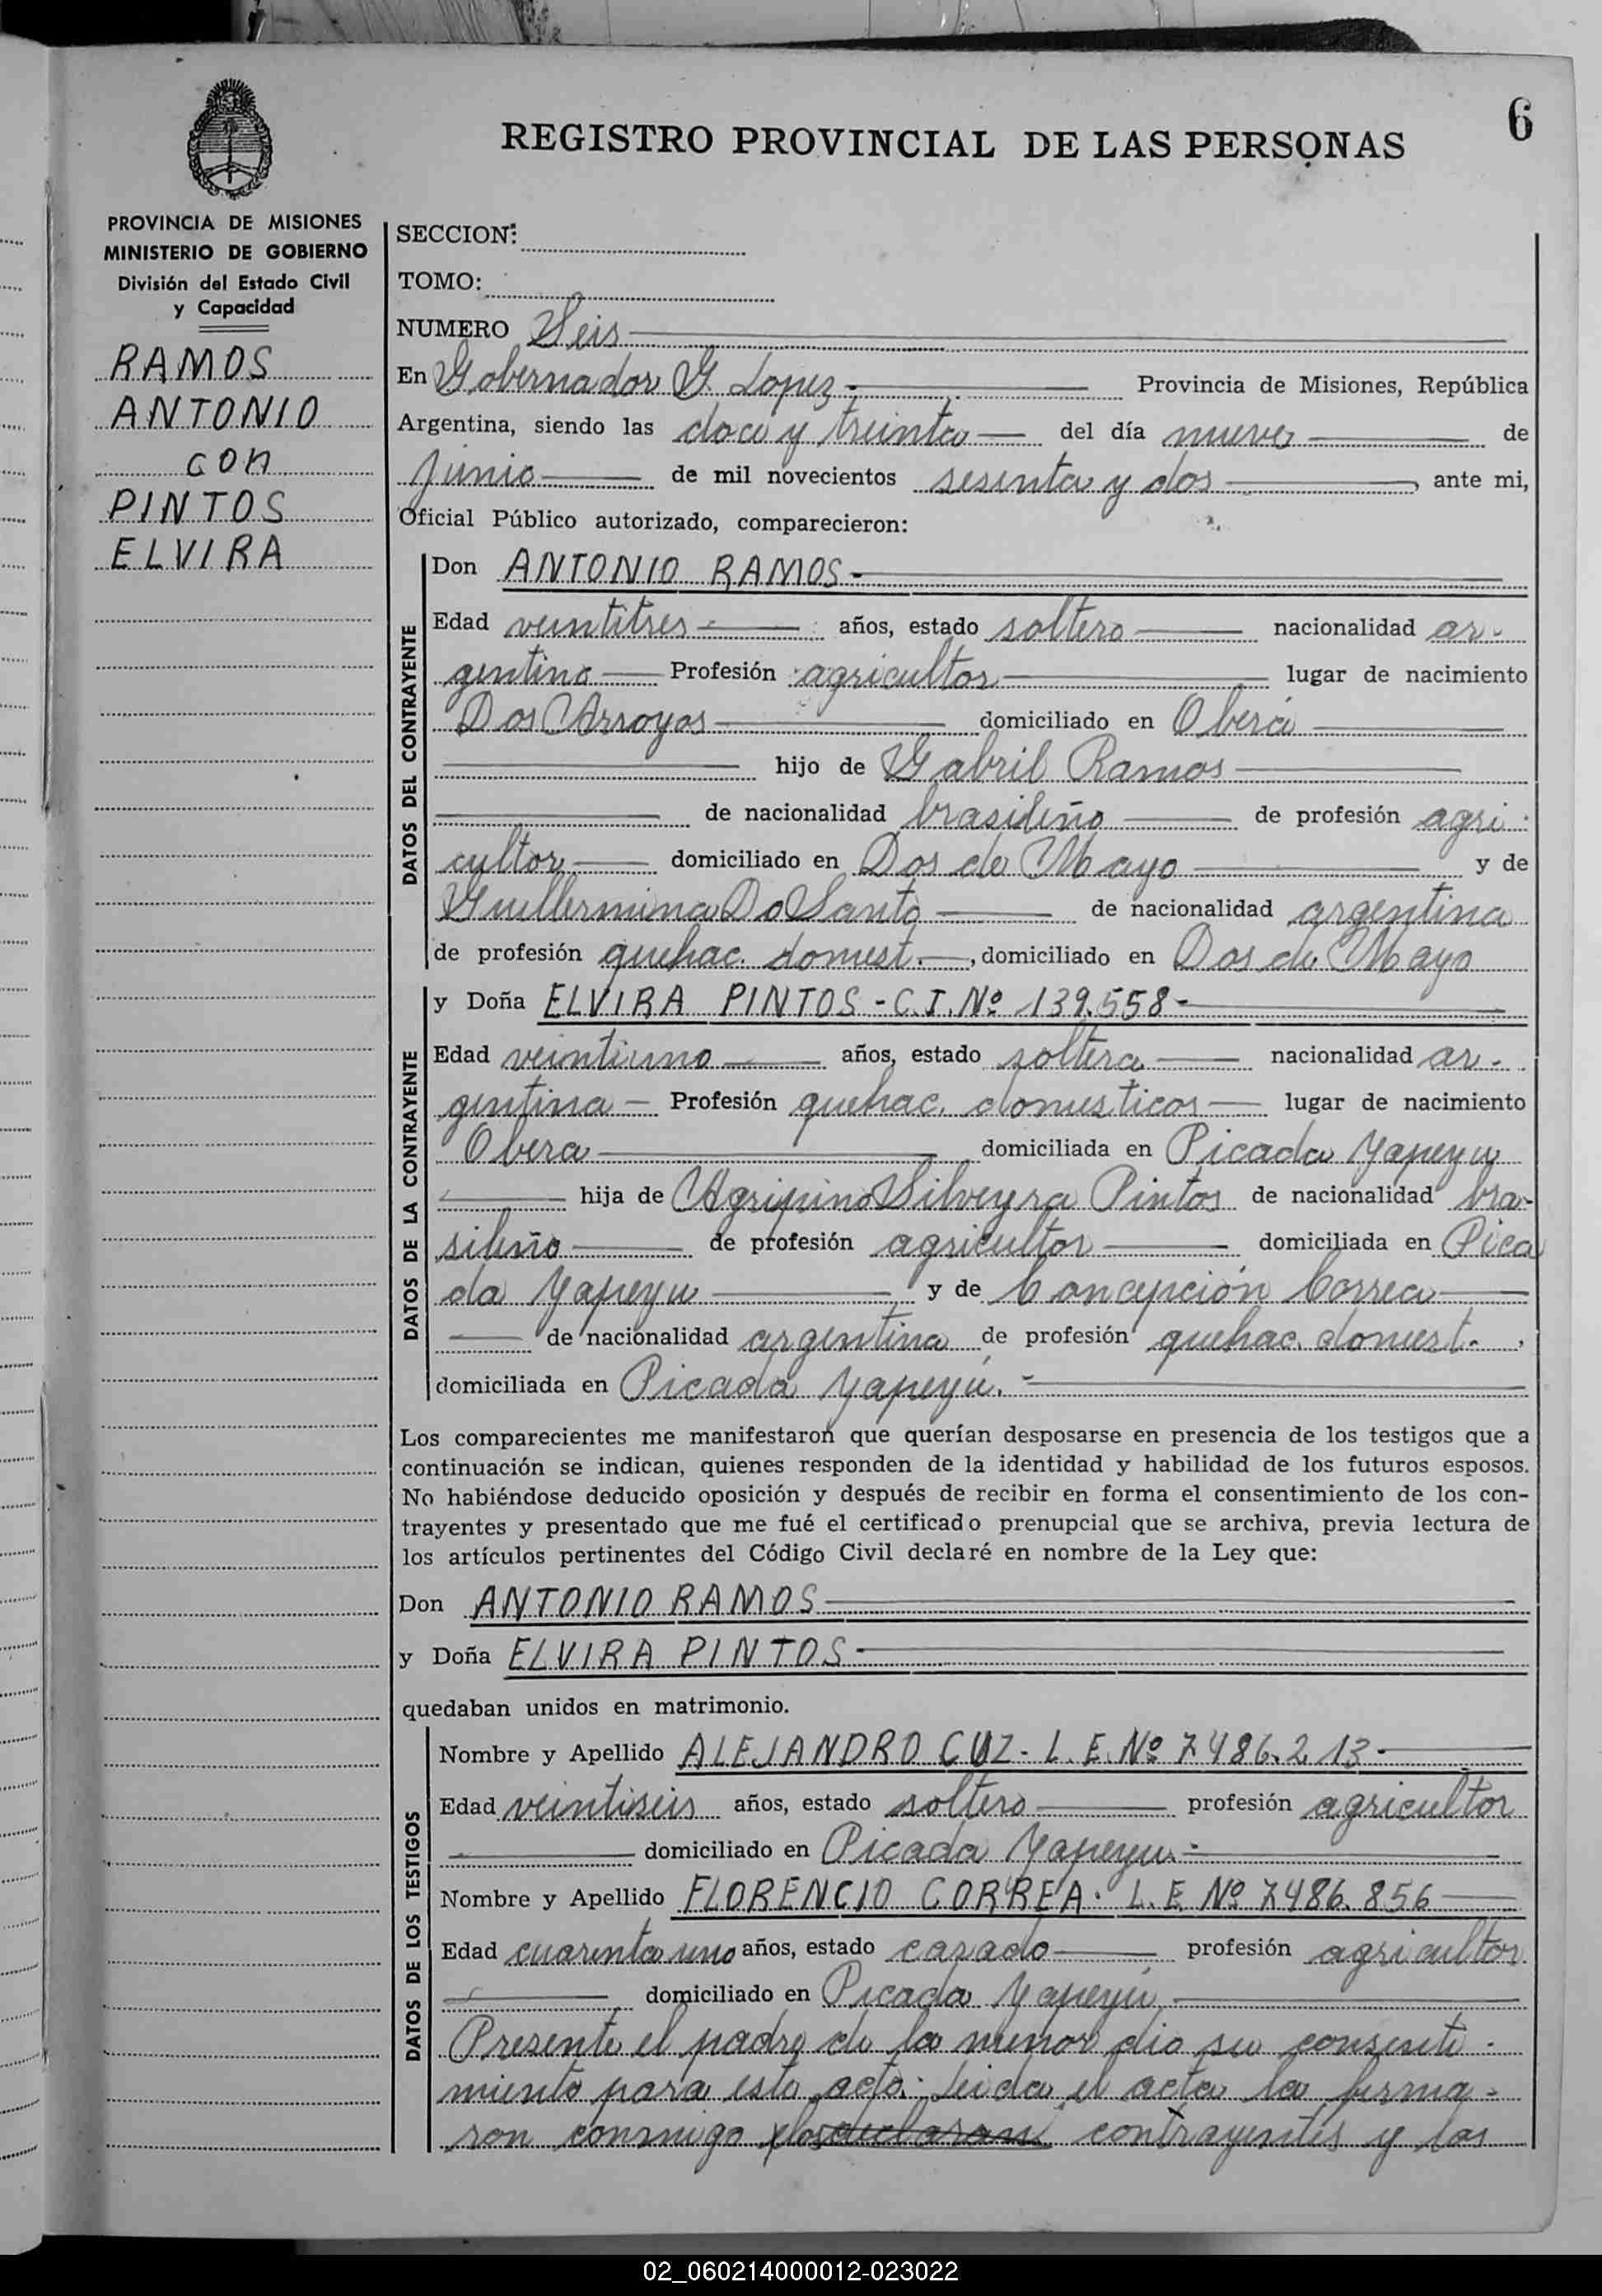 6
REGISTRO PROVINCIAL DE LAS PERSONAS
PROVINCIA DE MISIONES
MINISTERIO DE GOBIERNO
División del Estado Civil
y Capacidad
RAMOS
ANTONIO
CON
PINTOS
ELVIRA
SECCION:
TOMO:
NUMERO Seis
En Gobernador G. Lopez.- Provincia de Misiones, República
Argentina, siendo las doce y treinta del día nueve de
junio de mil novecientos sesenta y dos, ante mi,
Oficial Público autorizado, comparecieron:
DATOS DEL CONTRAYENTE
Don ANTONIO RAMOS-
Edad veintitres años, estado soltero nacionalidad ar-
gentino Profesión agricultor lugar de nacimiento
Dos Arroyos domiciliado en Oberá
hijo de Gabril Ramos
de nacionalidad brasileño de profesión agri-
cultor domiciliado en Dos de Mayo y de
Guillermina Do Santo de nacionalidad argentina
de profesión quehac. domest. , domiciliado en Dos de Mayo
DATOS DE LA CONTRAYENTE
y Doña ELVIRA PINTOS - C.I. Nº 139.558-
Edad veintiuno años, estado soltera nacionalidad ar-
gentina - Profesión quehac. domesticos lugar de nacimiento
Obera domiciliada en Picada Yapeyu
hija de Agripino Silveyra Pintos de nacionalidad bra-
sileño de profesión agricultor domiciliada en Pica
da Yapeyu y de Concepción Correa
de nacionalidad argentina de profesión quehac. domest. ,
domiciliada en Picada Yapeyú. -
Los comparecientes me manifestaron que querían desposarse en presencia de los testigos que a
continuación se indican, quienes responden de la identidad y habilidad de los futuros esposos.
No habiéndose deducido oposición y después de recibir en forma el consentimiento de los con-
trayentes y presentado que me fué el certificado prenupcial que se archiva, previa lectura de
los artículos pertinentes del Código Civil declaré en nombre de la Ley que:
Don ANTONIO RAMOS
y Doña ELVIRA PINTOS-
quedaban unidos en matrimonio.
DATOS DE LOS TESTIGOS
Nombre y Apellido ALEJANDRO CUZ - L.E. Nº 7486.213-
Edad veintiseis años, estado soltero profesión agricultor
domiciliado en Picada Yapeyu.-
Nombre y Apellido FLORENCIO CORREA. L.E. Nº 7486.856
Edad cuarenta uno años, estado casado profesión agricultor.
domiciliado en Picada Yapeyú,
Presente el padre de la menor dio su consenti-
miento para esto acto. Leida el acta la firma-
ron conmigo contrayentes y los
02_060214000012-023022